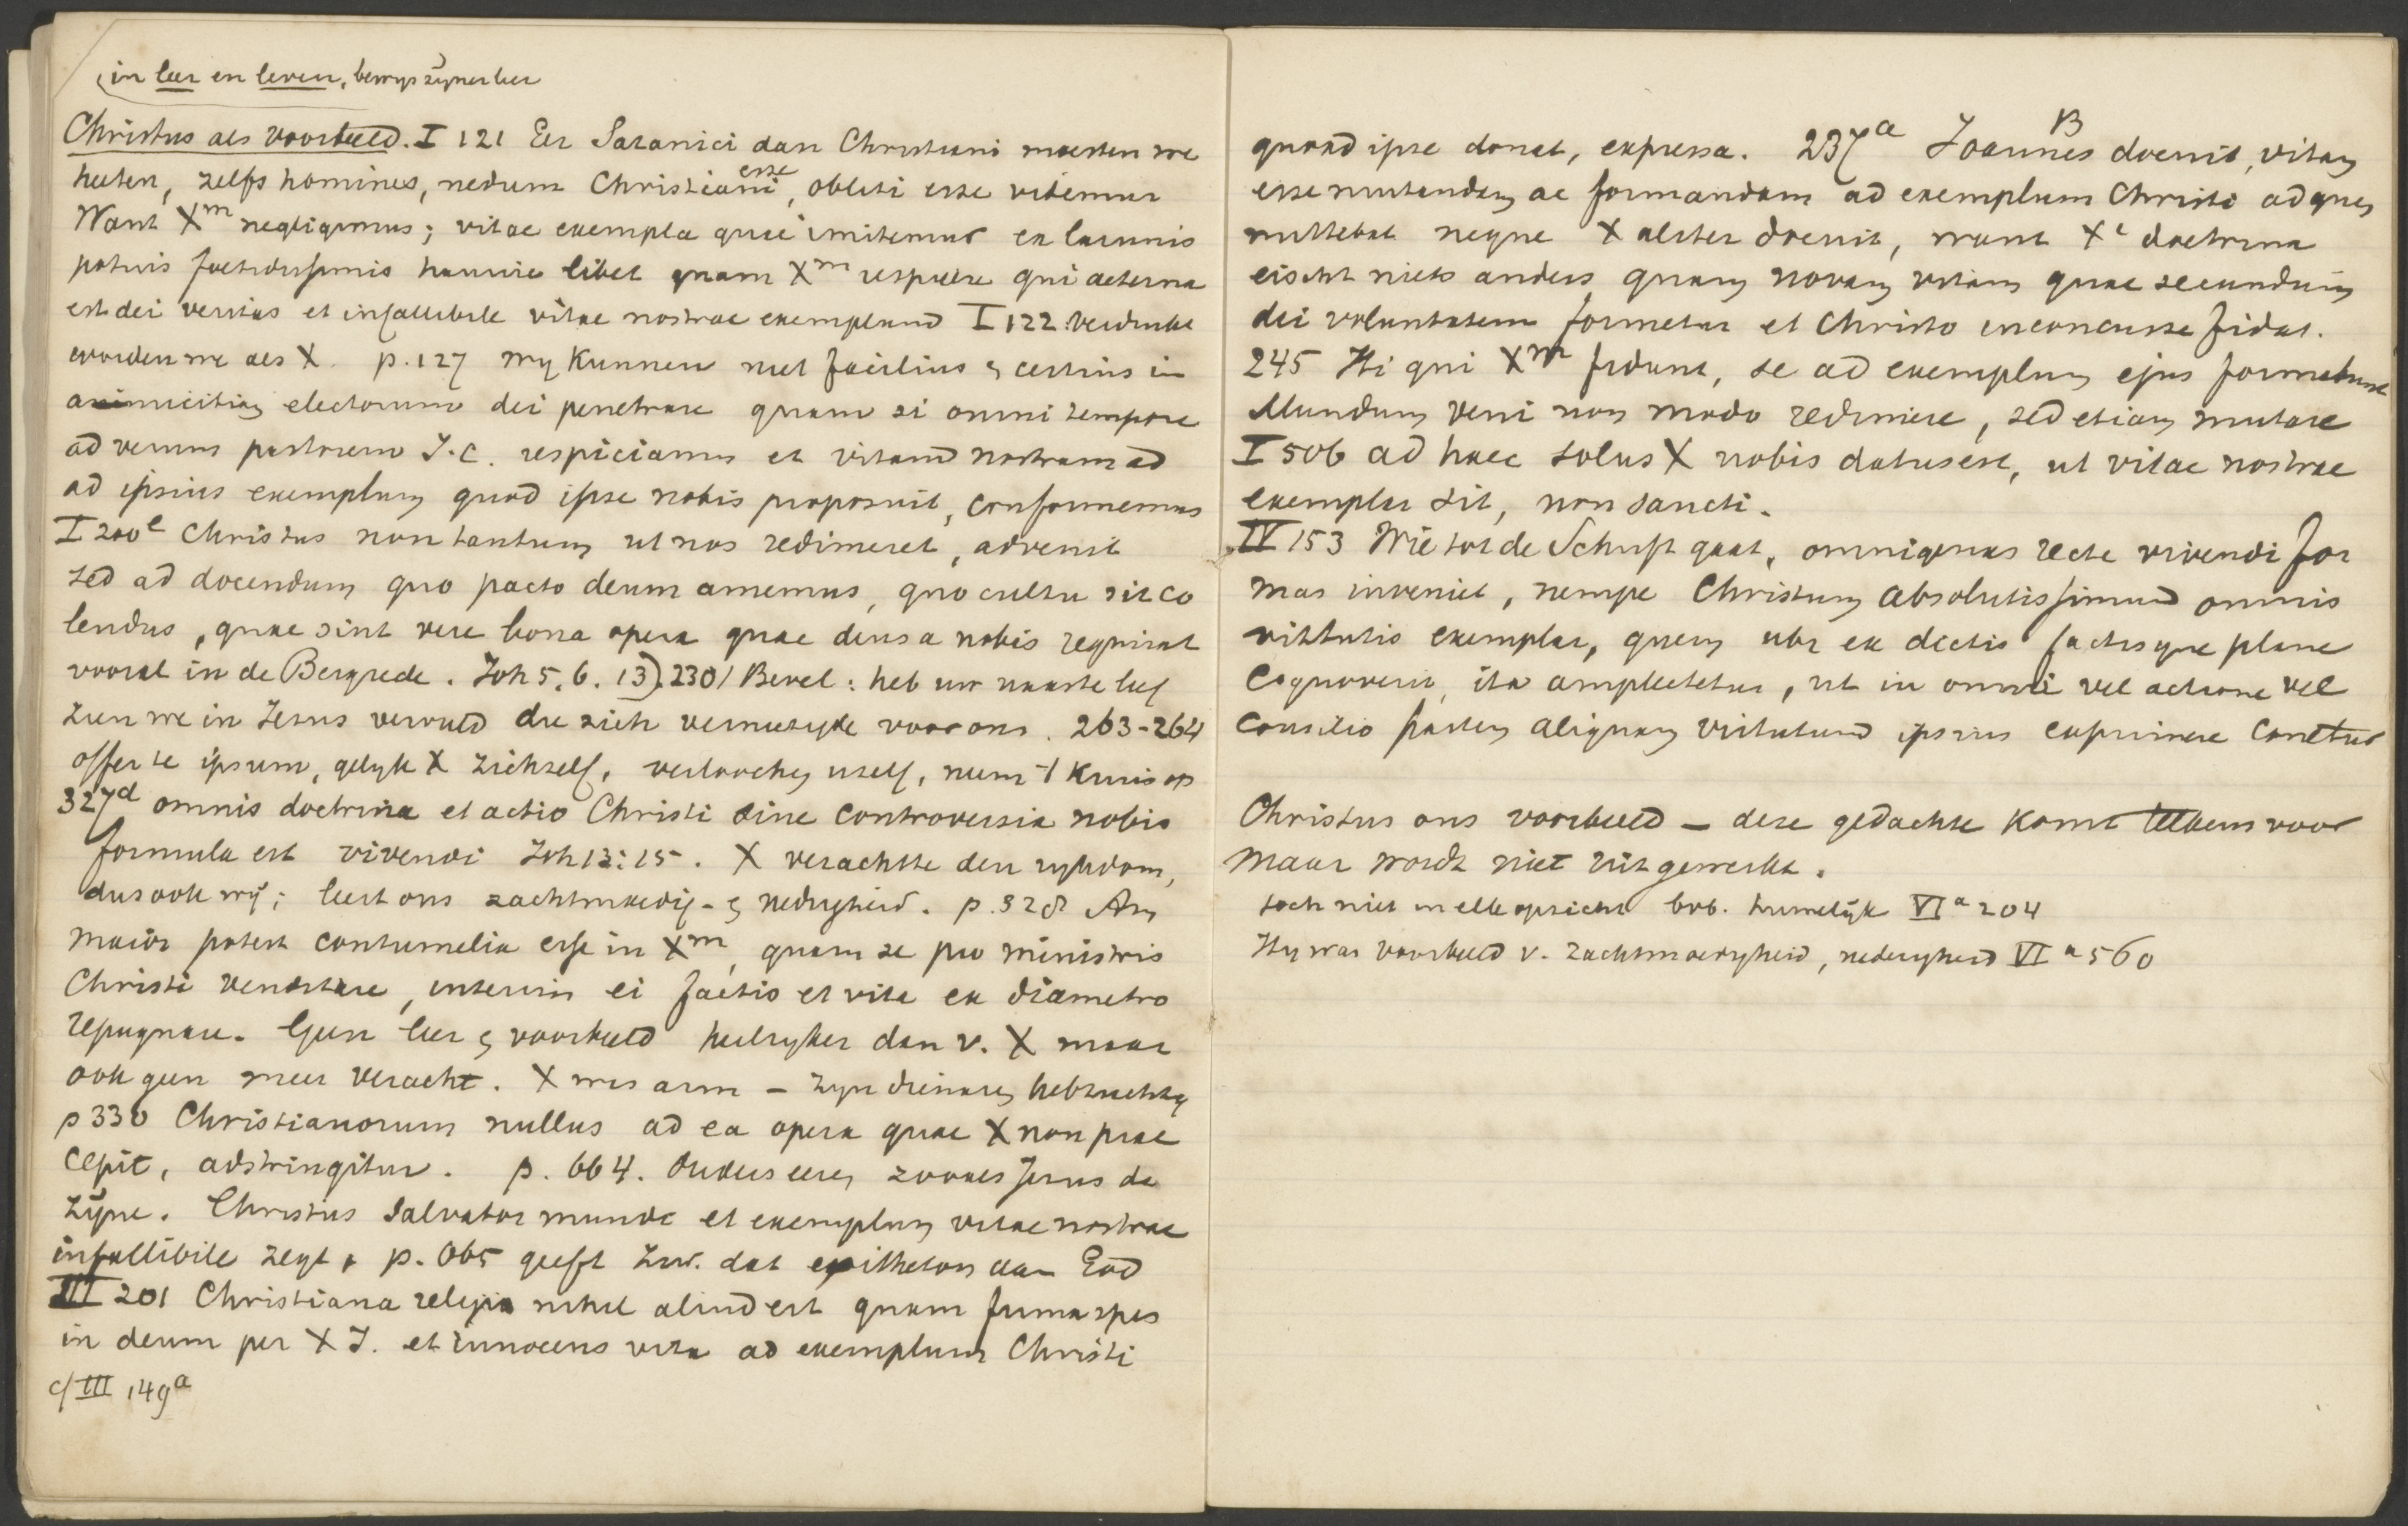 in leer en leven, bewys zijner leer
Christus als voorbeeld. I 121 Eer Satanici dan Christiani moesten we
heeten, zelfs homines, nedum Christiani esse, obliti esse videmur
Want Xm negligimus; vitae exempla quae imitemur ex lacunis
potius foetidissimis haurire libet quam Xm respicere qui aeterna
est dei veritas et infallibile vitae nostrae exemplum I 122 verdrukt
worden we als X. p. 127 wy kunnen niet facilius & certius in
amicitiam electorum dei penetrare quam si omni tempore
ad verum pastorem J.C. respiciamus et vitam nostram ad
ad ipsius exemplum quod ipse nobis proposuit, conformemus
I 200e Christus non tantum ut nos redimeret, advenit
sed ad docendum quo pacto deum amemus, quo cultu sit co
lendus, quae sint vere bona opera quae deus a nobis requirat
vooral in de Bergrede. Joh 5. 6. 13). 230/ Bevel: heb uw naaste lief
zien we in Jesus vervuld die zich vernietigde voor ons. 263-264
offer te ipsum, gelyk X zichzelf, verloochen uzelf, neem 't kruis op
327d omnis doctrina et actio Christi sine controversia nobis
formula est vivendi Joh 13:15. X verachtte den rykdom,
dus ook wij; leert ons zachtmoedig- & nedrigheid. p. 328 An
maior potest contumelia esse in Xm, quam se pro ministris
Christi venditare, interim ei factis et vita ex diametro
repugnare. Geen leer & voorbeeld heilryker dan v. X maar
ook geen meer veracht. X was arm - zyn dienaren hebzuchtig
p 330 Christianorum nullus ad ea opera quae X non prae
cepit, adstringitur. p. 664. Ouders eeren zooals Jesus de
zijne. Christus Salvator mundi et exemplum vitae nostrae
infallibile zegt p. 665 geeft Zw. dat epitheton aan God
III 201 Christiana religio nihil aliud est quam firma spes
in deum per X J. et innocens vita ad exemplum Christi
cf III 149a
quoad ipse donat, expressa. 237a Joannes B docuit, vitam
esse mutandam ac formandam ad exemplum Christi ad quem
mittebat neque X aliter docuit, want Xi doctrina
eischt niets anders quam novam vitam quae secundum
dei voluntatem formetur et Christo inconcusse fidat.
245 Hi qui Xm fidunt, se ad exemplum ejus formabunt
Mundum veni non modo redimere, sed etiam mutare
I 506 ad haec solus X nobis datus est, ut vitae nostrae
exemplar sit, non sancti.
IV 153 Wie tot de Schrift gaat, omnigenas recte vivendi for
mas inveniet, nempe Christum absolutissimum omnis
virtutis exemplar, quem ubi ex dictis factisque plane
cognoverit, ita amplectetur, ut in omni vel actione vel
consilio partem aliquam virtutum ipsius exprimere conetur
Christus ons voorbeeld - deze gedachte komt telkens voor
maar wordt niet uitgewerkt.
toch niet in elk opzicht bvb. huwelijk VIa 204
Hy was voorbeeld v. zachtmoedigheid, nederigheid VI a 560